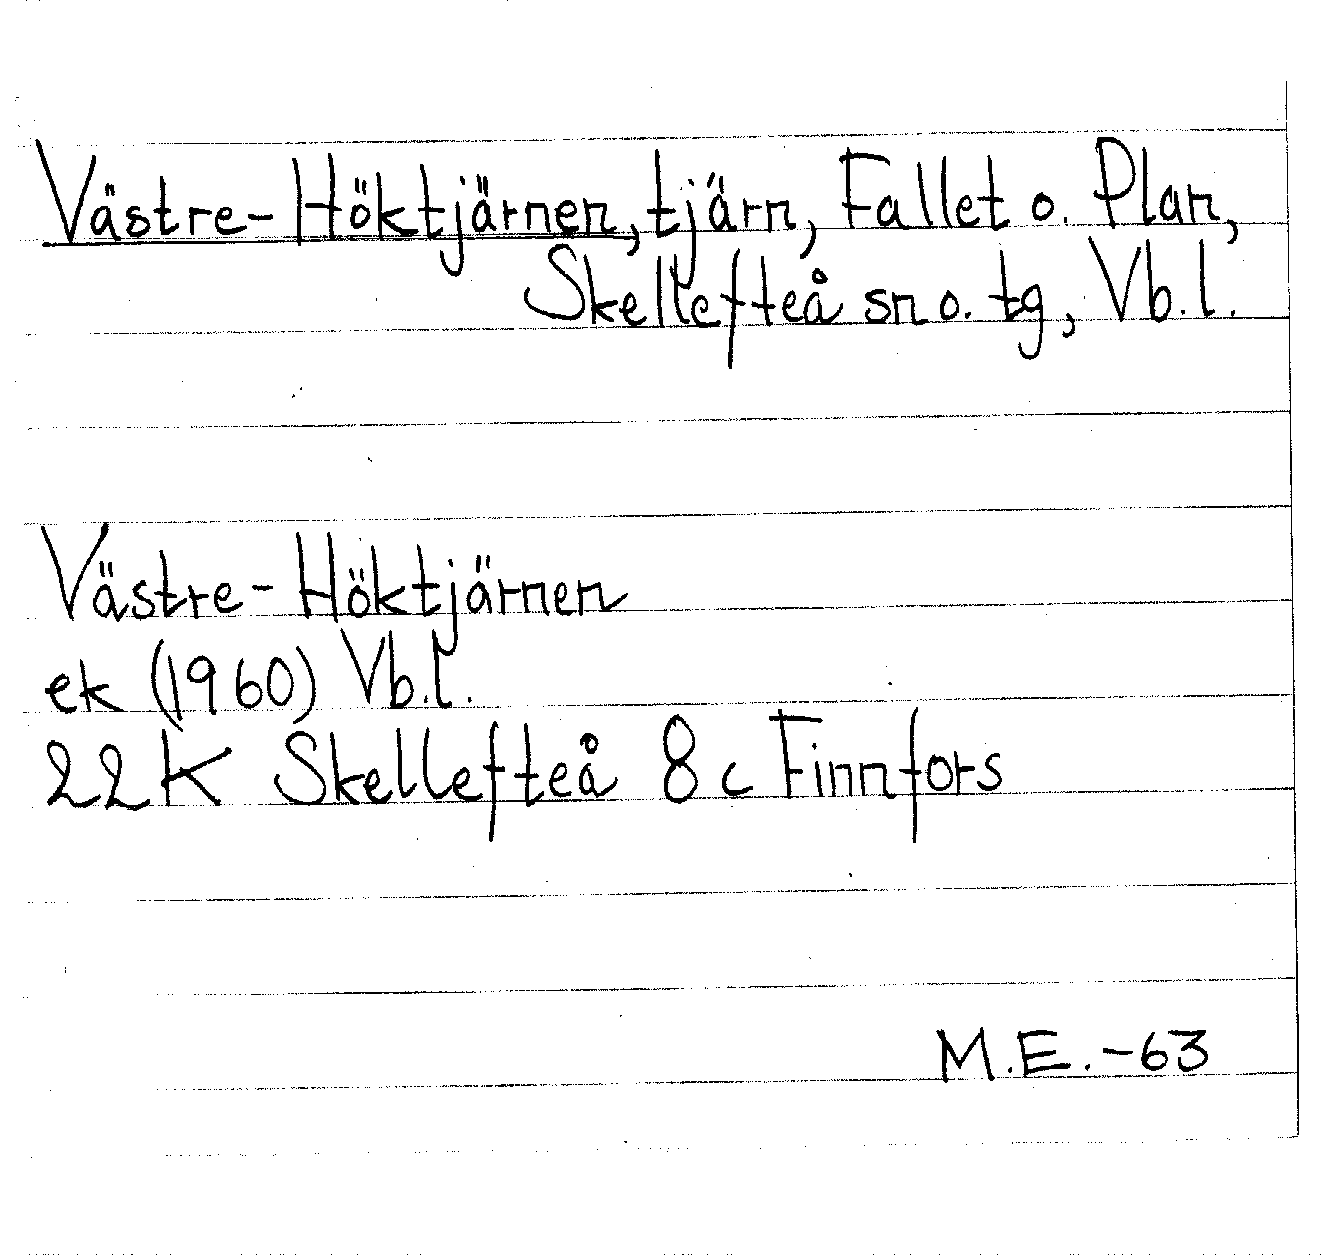 Västre-Höktjärnen, tjärn, Fallet o. Plan,
Skellefteå sn o. tg, Vb.l.
Västre-Höktjärnen
ek (1960) Vb.l.
22K Skellefteå 8c Finnfors
M.E.-63